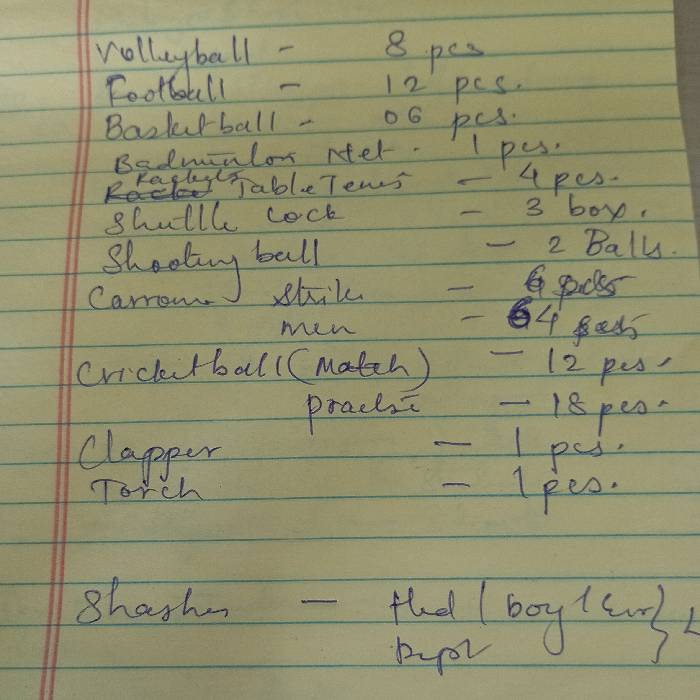 Volleyball - 8 pcs
Football - 12 pcs.
Basketball - 06 pcs.
Badminton Net. 1 pcs.
Rackets Table Tenis - 4 pcs.
Shuttle Cock - 3 box.
Shooting ball - 2 Balls.
Carrom Strik -
men - 4
Cricketball (Match) - 12 pcs.
practise - 18 pcs.
Clapper - 1 pcs.
Torch - 1 pcs.
Shashes - (boy